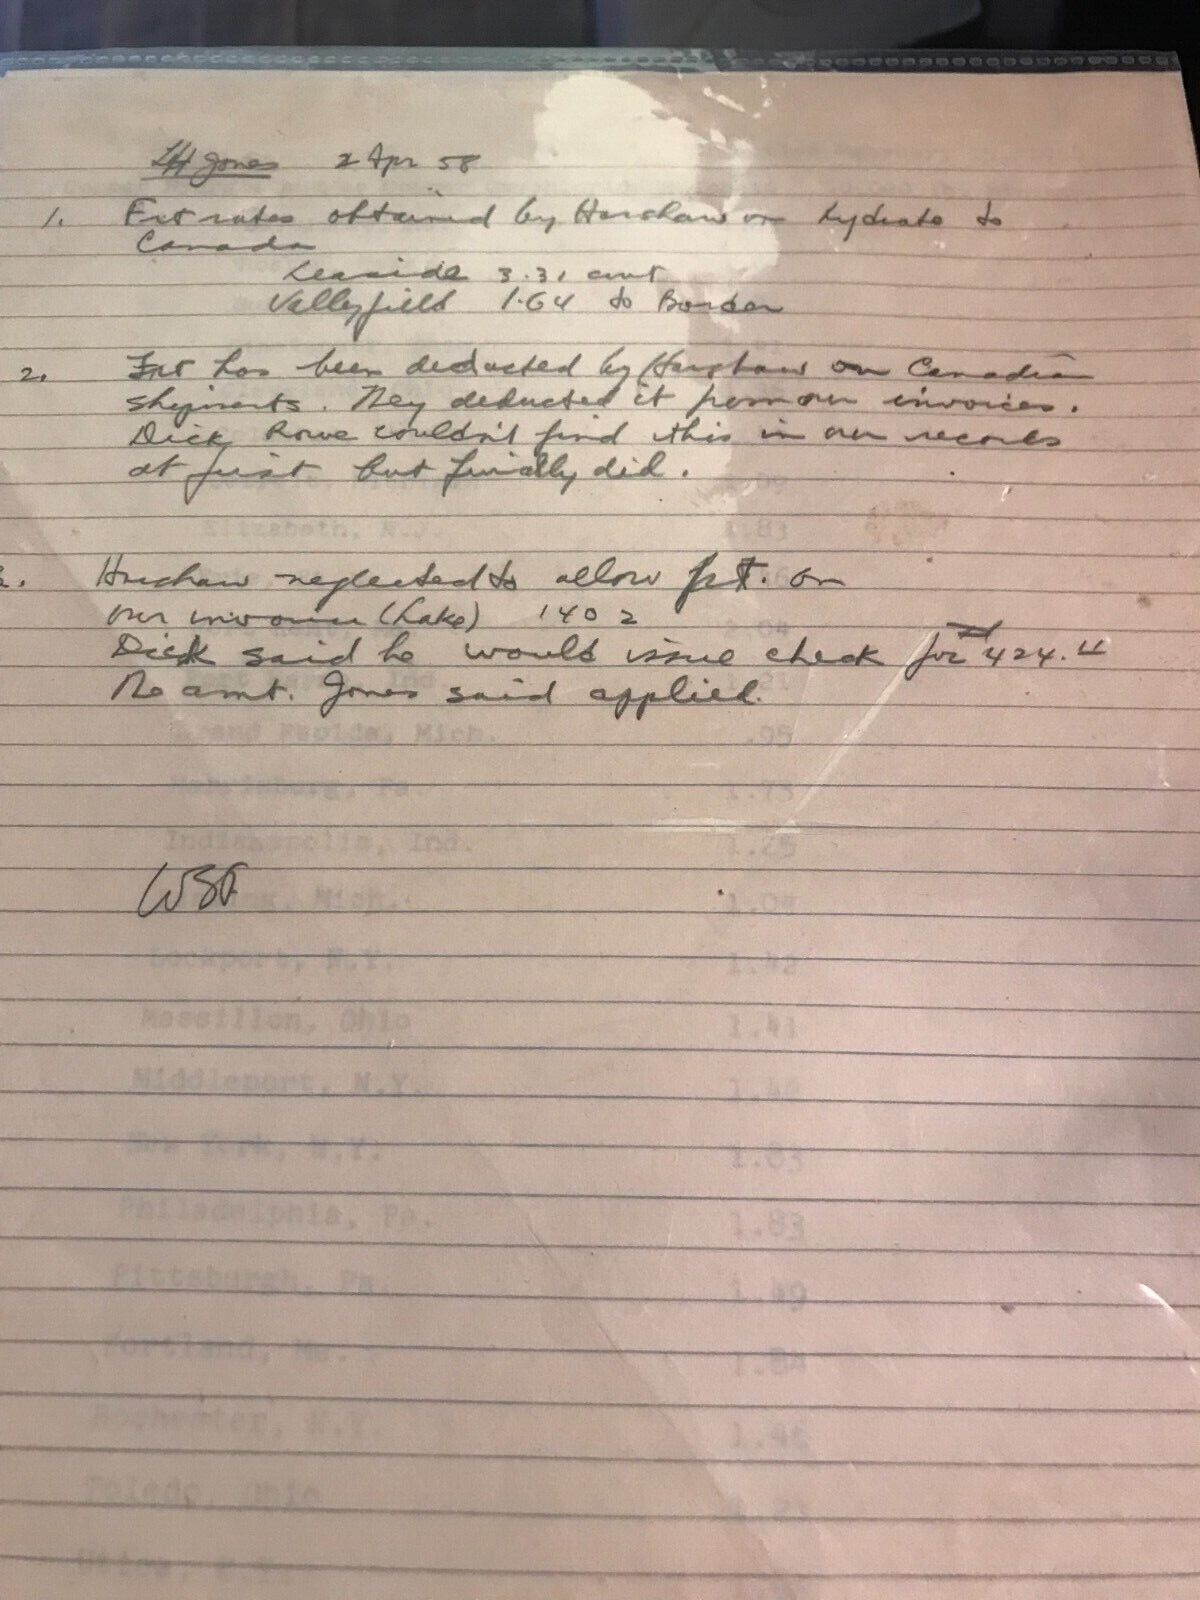 LH Jones 2 Apr 58
1. Frt rates obtained by Harshaw on hydrate to
Canada
Leaside 3.31 cwt
Valleyfield 1.64 to Border
2. Frt has been deducted by Harshaw on Canadian
shipments. They deducted it from our invoices.
Dick Rowe couldn't find this in our records
at first but finally did.
Harshaw neglected to allow frt. on
our invoice (Lake) 1402
Dick said he would issue check for 424.
The amt. Jones said applied.
Elizabeth, N.J. 1.83
Grand Rapids, Mich. .95
Harrisburg, Pa. 1.73
Indianapolis, Ind. 1.25
Mich. 1.04
Lockport, N.Y. 1.42
Massillon, Ohio 1.41
Middleport, N.Y.
New York, N.Y. 1.83
Philadelphia, Pa. 1.83
Pittsburgh, Pa. 1.49
Portland, Me. 1.84
Rochester, N.Y. 1.46
Toledo, Ohio
Utica,